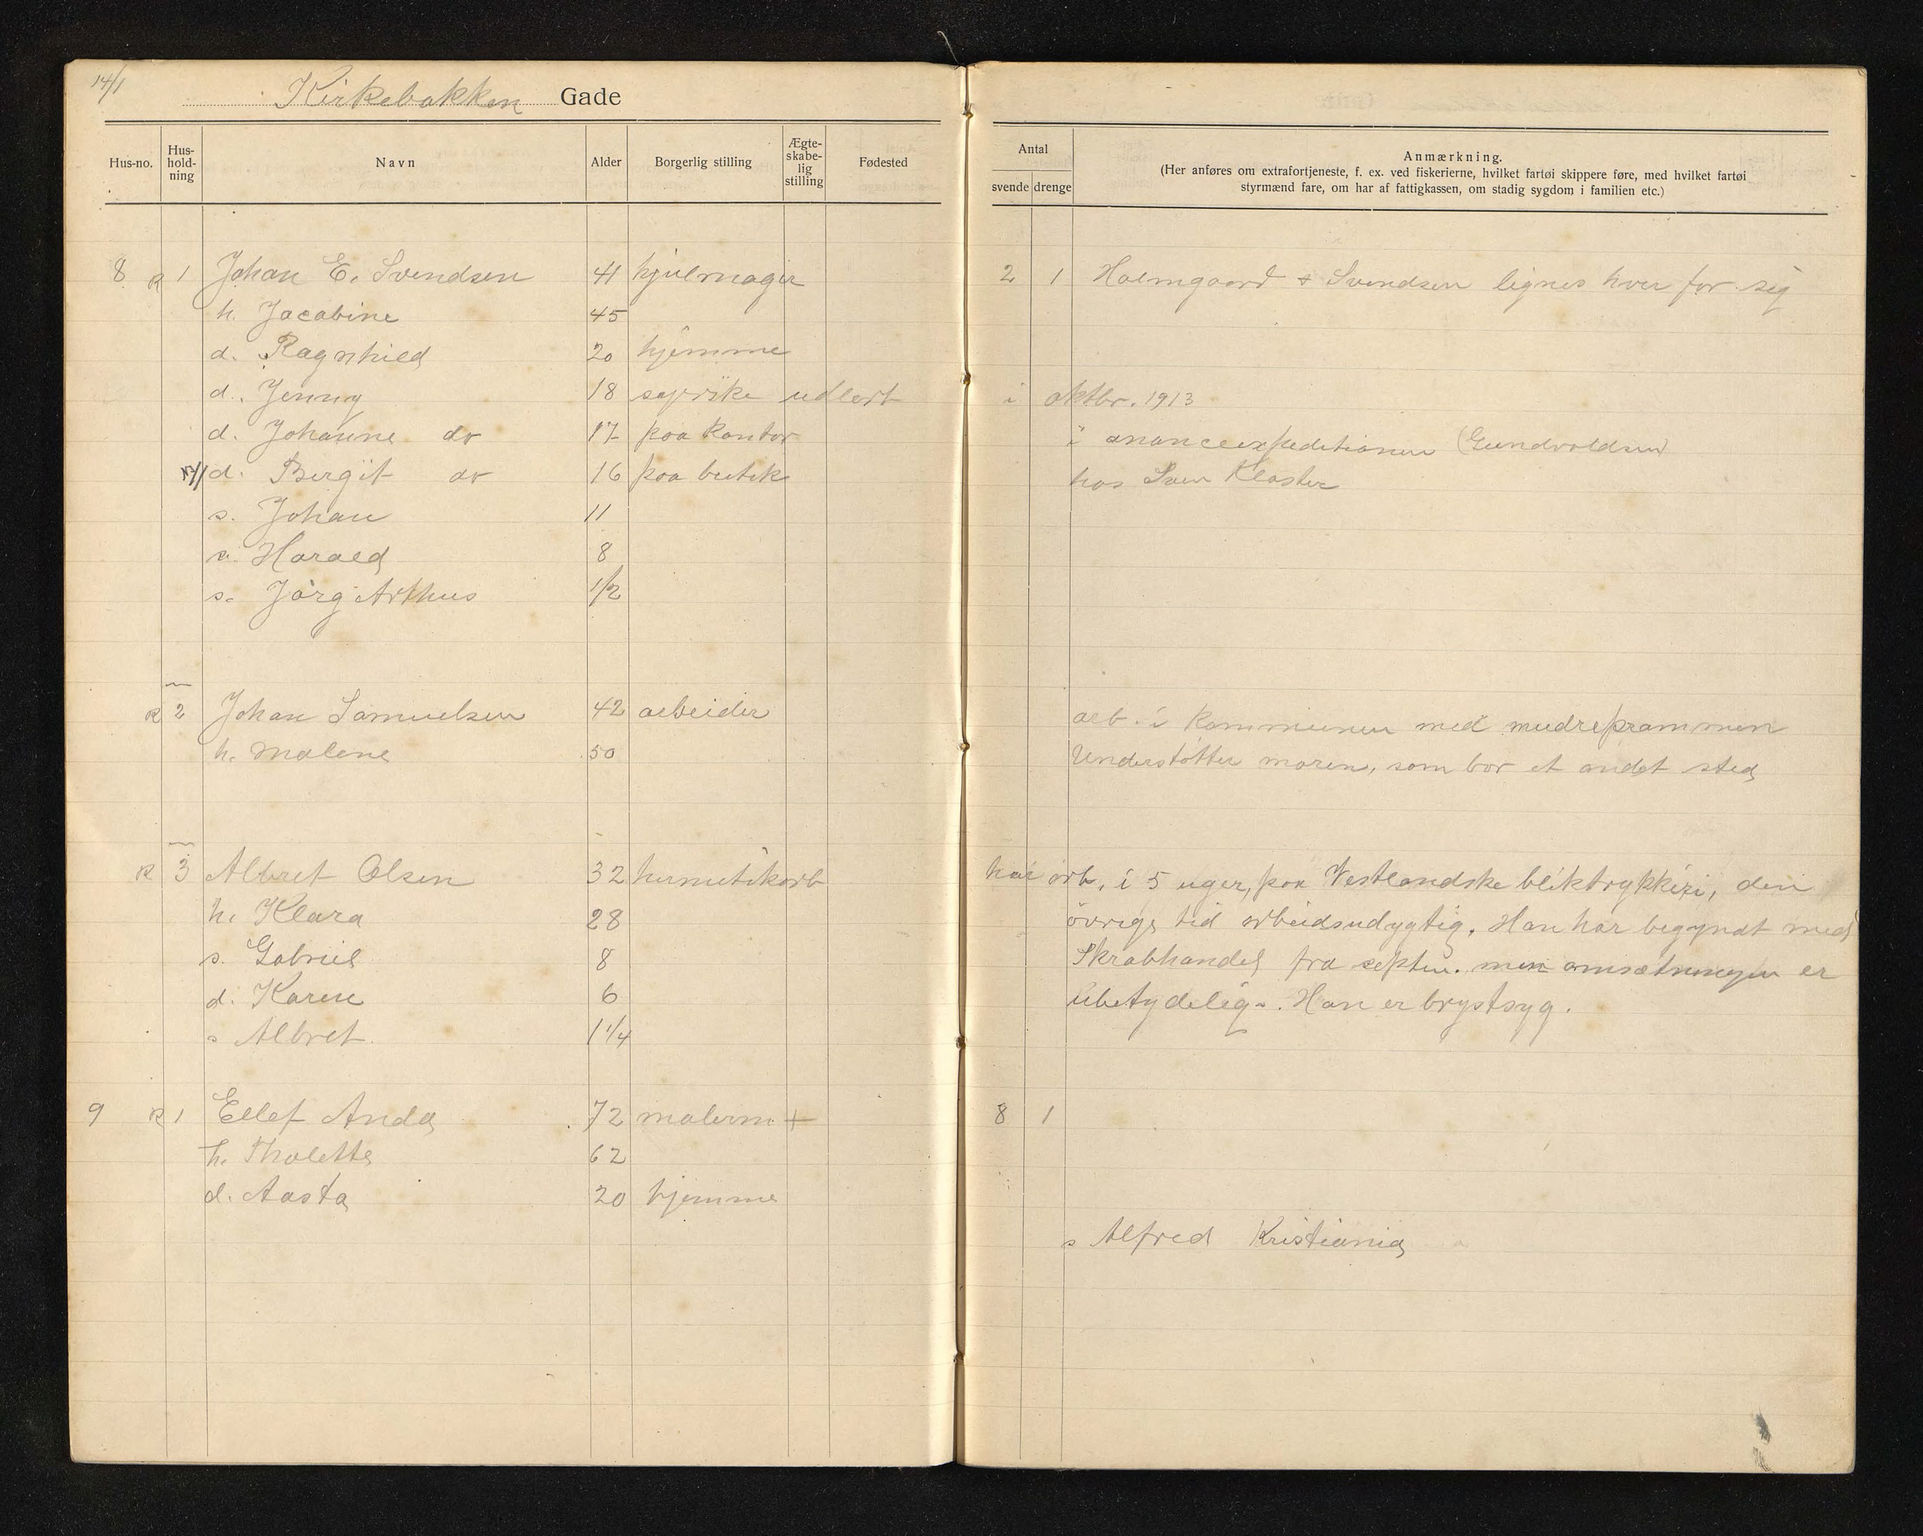 14/1
Kirkebakken Gade
Hus-no. Hus-hold-ning Navn Alder Borgerlig stilling Ægte-skabe-lig stilling Fødested
Antal svende drenge
Anmærkning.
(Her anføres om extrafortjeneste, f. ex. ved fiskerierne, hvilket fartøi skippere føre, med hvilket fartøi
styrmænd fare, om har af fattigkassen, om stadig sygdom i familien etc.)
8 R 1 Johan E. Svendsen 41 hjulmager 2 1 Holmgaard + Svendsen lignes hver for sig
h. Jacobine 45
d. Ragnhild 20 hjemme
d. Jenny 18 syerske udlært i oktbr. 1913
d. Johanne do 17 paa kontor i anonceexpeditionen (Gundvaldsen)
d. Bergit do 16 paa butik hos Sven Kloster
s. Johan 11
s. Harald 8
s. Jörg Arthus 1/2
R 2 Johan Samuelsen 42 arbeider arb. i kommunen med mudreprammen
h. Malene 50 Understötter moren, som bor et andet sted
R 3 Albret Olsen 32 hermetikarb har arb. i 5 uger, paa Vestlandske bliktrykkeri, den
h. Klara 28 övrige tid arbeidsudygtig. Han har begyndt med
s. Gabriel 8 Skrabhandel fra septbr. men omsætningen er
d. Karen 6 ubetydelig. Han er brystsyg.
s Albret 1 1/4
9 R 1 Ellef Anda 72 malerm + 8 1
h. Tholette 62
d. Aasta 20 hjemme
s Alfred Kristiania